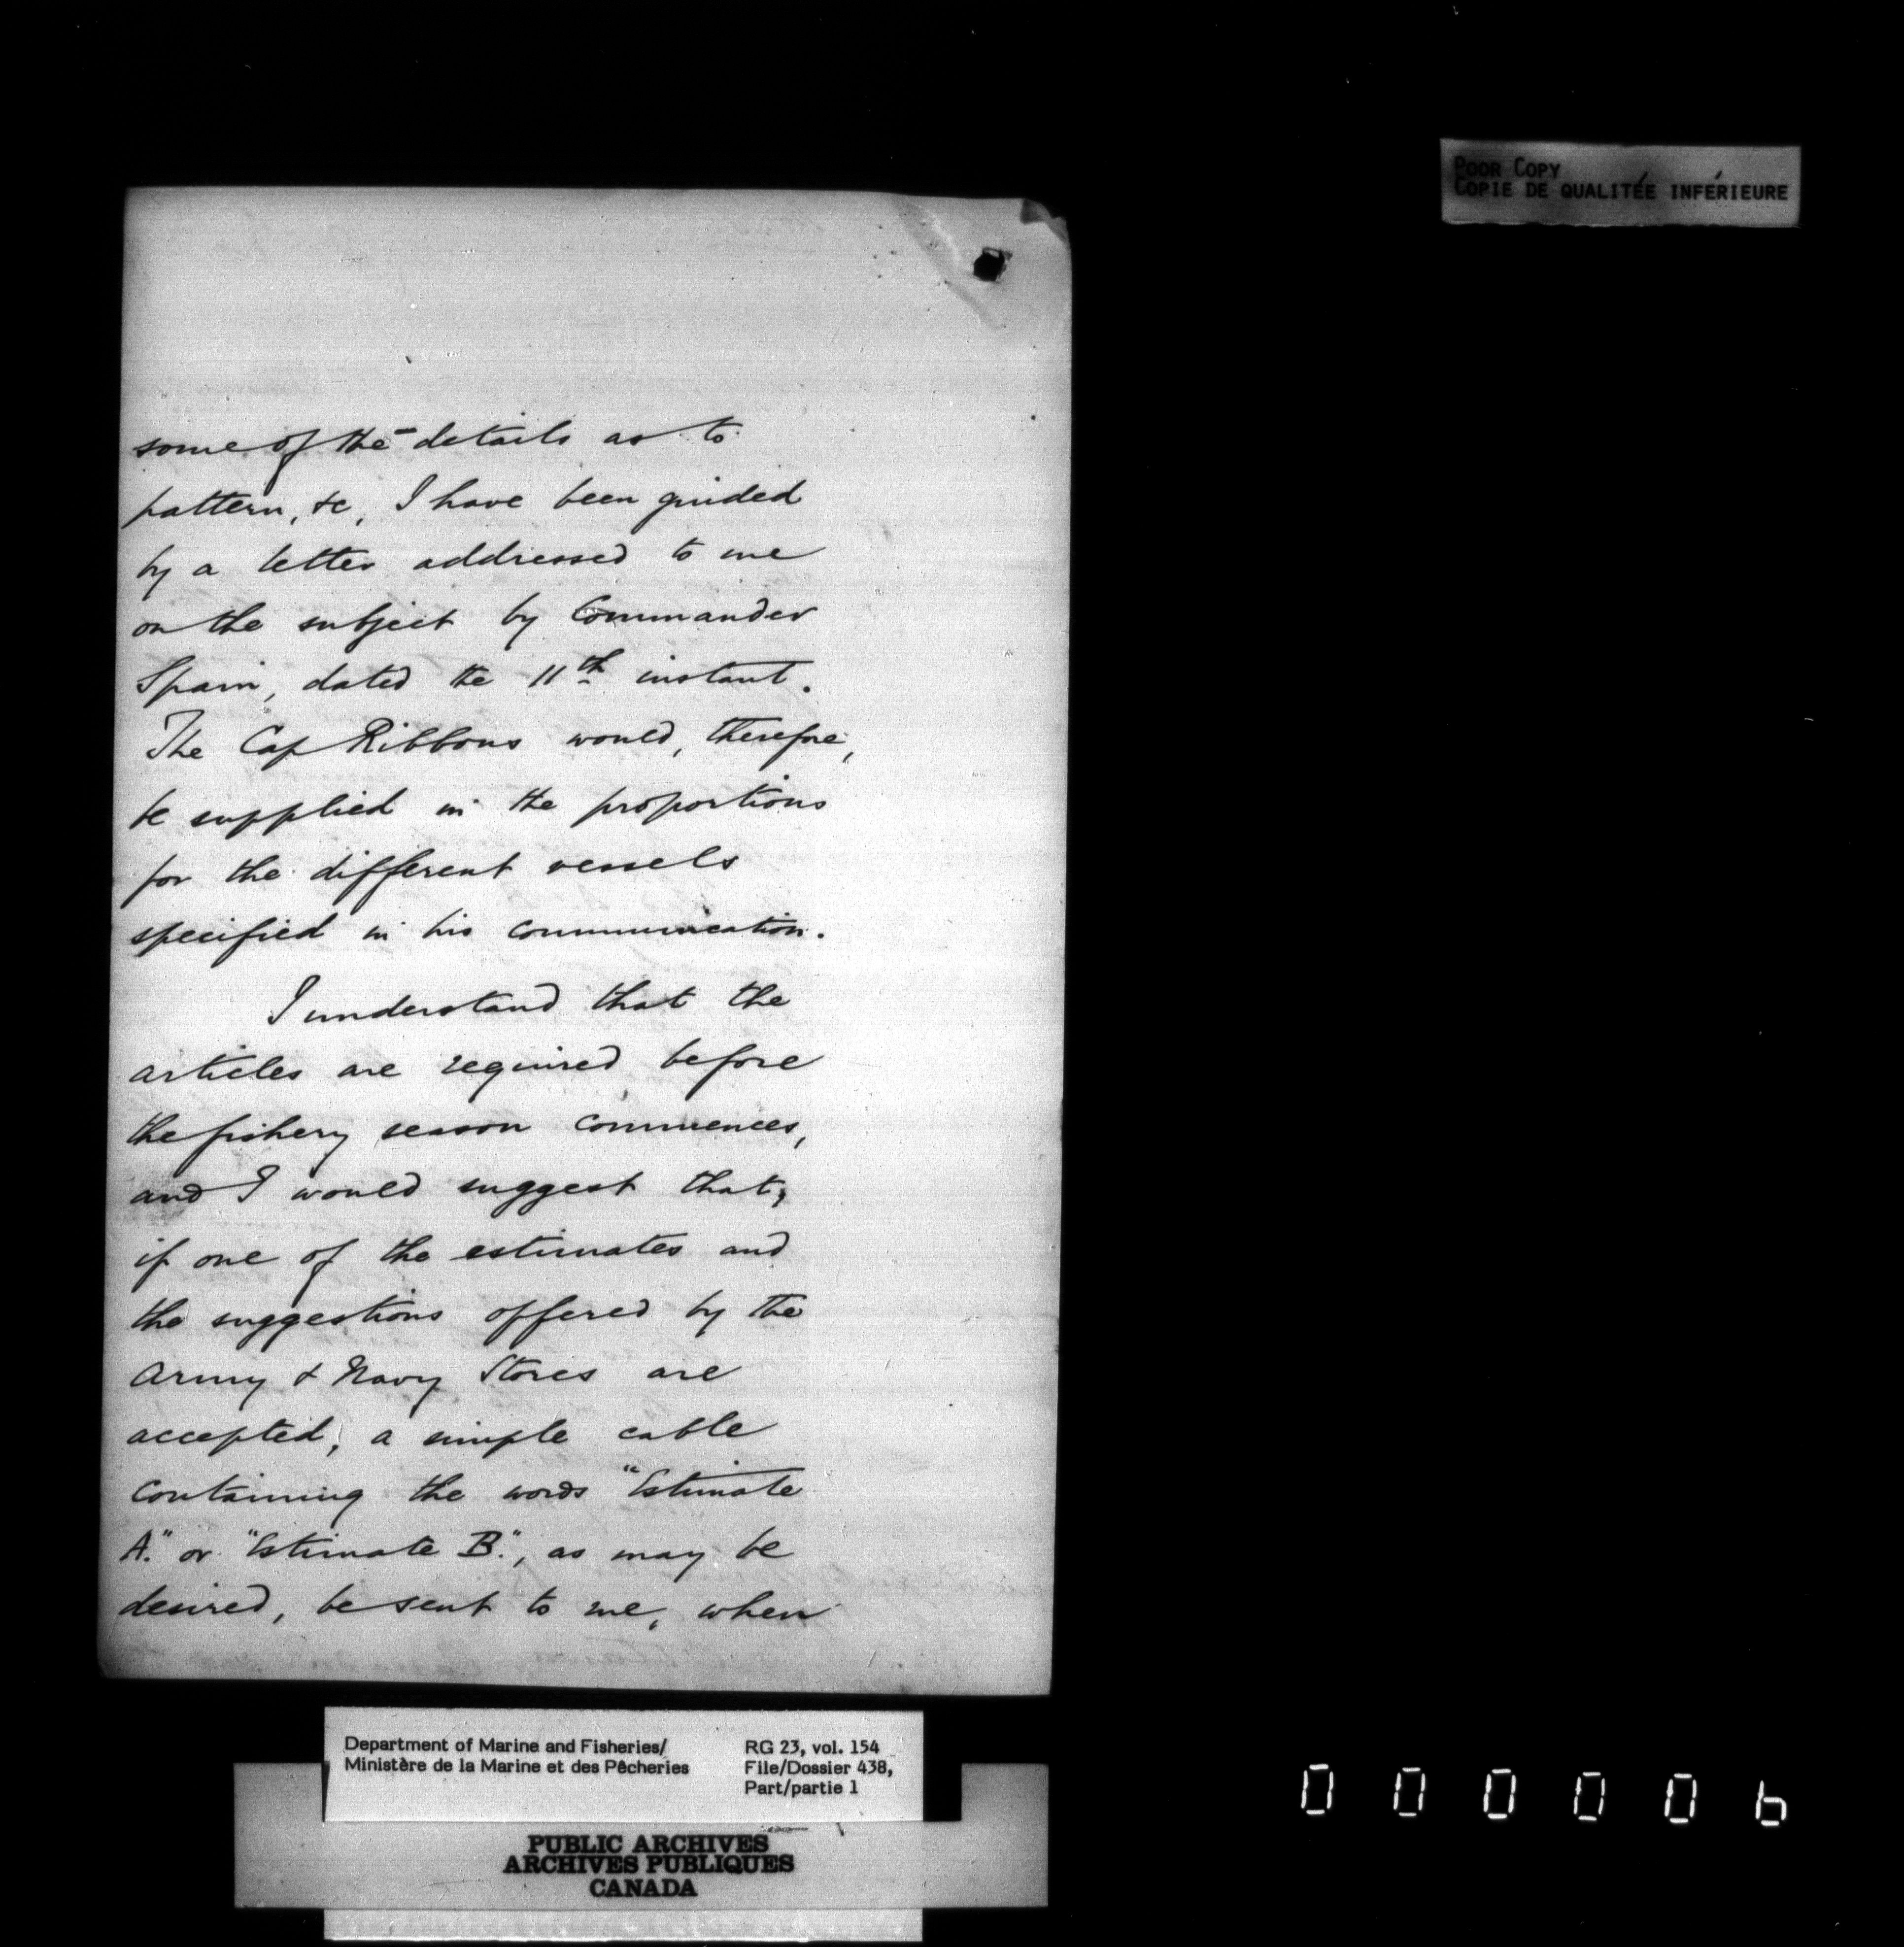 POOR COPY
COPIE DE QUALITÉE INFÉRIEURE
some of the details as to
pattern, &c, I have been guided
by a letter addressed to me
on the subject by Commander
Spain, dated the 11th instant.
The Cap Ribbons would, therefore,
be supplied in the proportions
for the different vessels
specified in his communication.
I understand that the
articles are required before
the fishery season commences,
and I would suggest that,
if one of the estimates and
the suggestions offered by the
Army & Navy Stores are
accepted, a simple cable
containing the words "Estimate
A." or "Estimate B.", as may be
desired, be sent to me, when
Department of Marine and Fisheries/
Ministère de la Marine et des Pêcheries
RG 23, vol. 154
File/Dossier 438,
Part/partie 1
PUBLIC ARCHIVES
ARCHIVES PUBLIQUES
CANADA
000006